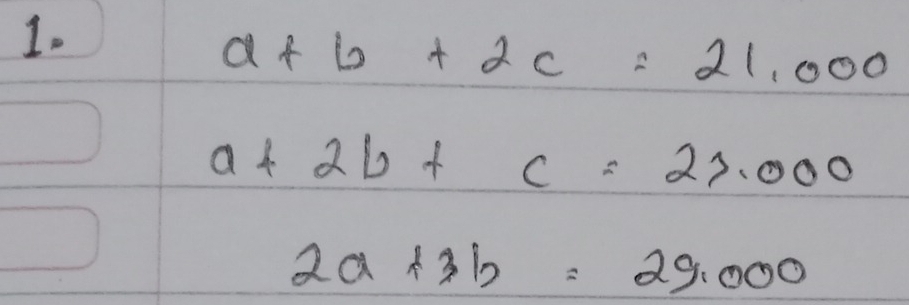 1. a + b + 2c = 21.000
a + 2b + c = 23.000
2a + 3b = 29.000